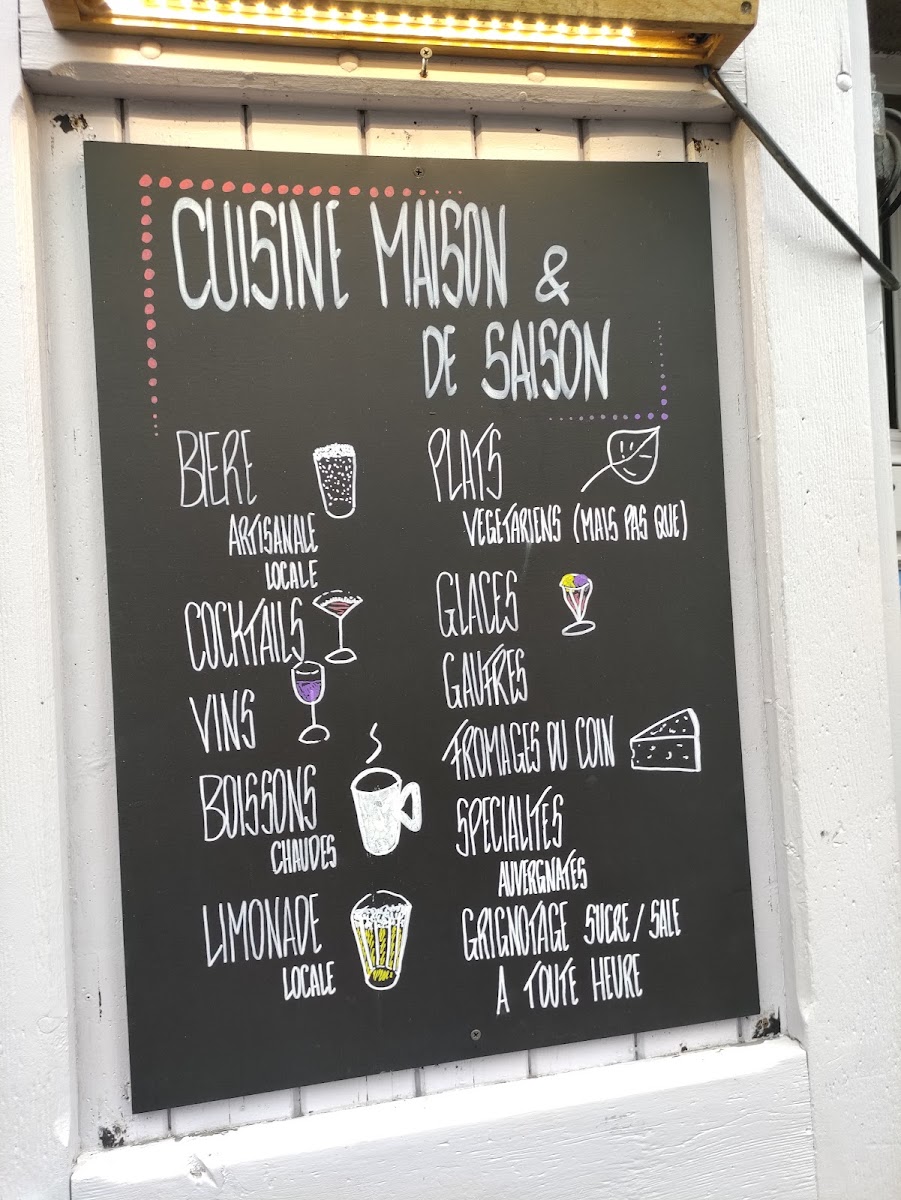 CUISINE MAISON &
DE SAISON
BIERE
ARTISANALE
LOCALE
COCKTAILS
VINS
BOISSONS
CHAUDES
LIMONADE
LOCALE
PLATS
VEGETARIENS (MAIS PAS QUE)
GLACES
GAUFRES
FROMAGES DU COIN
SPECIALITES
AUVERGNATES
GRIGNOTAGE SUCRE / SALE
A TOUTE HEURE